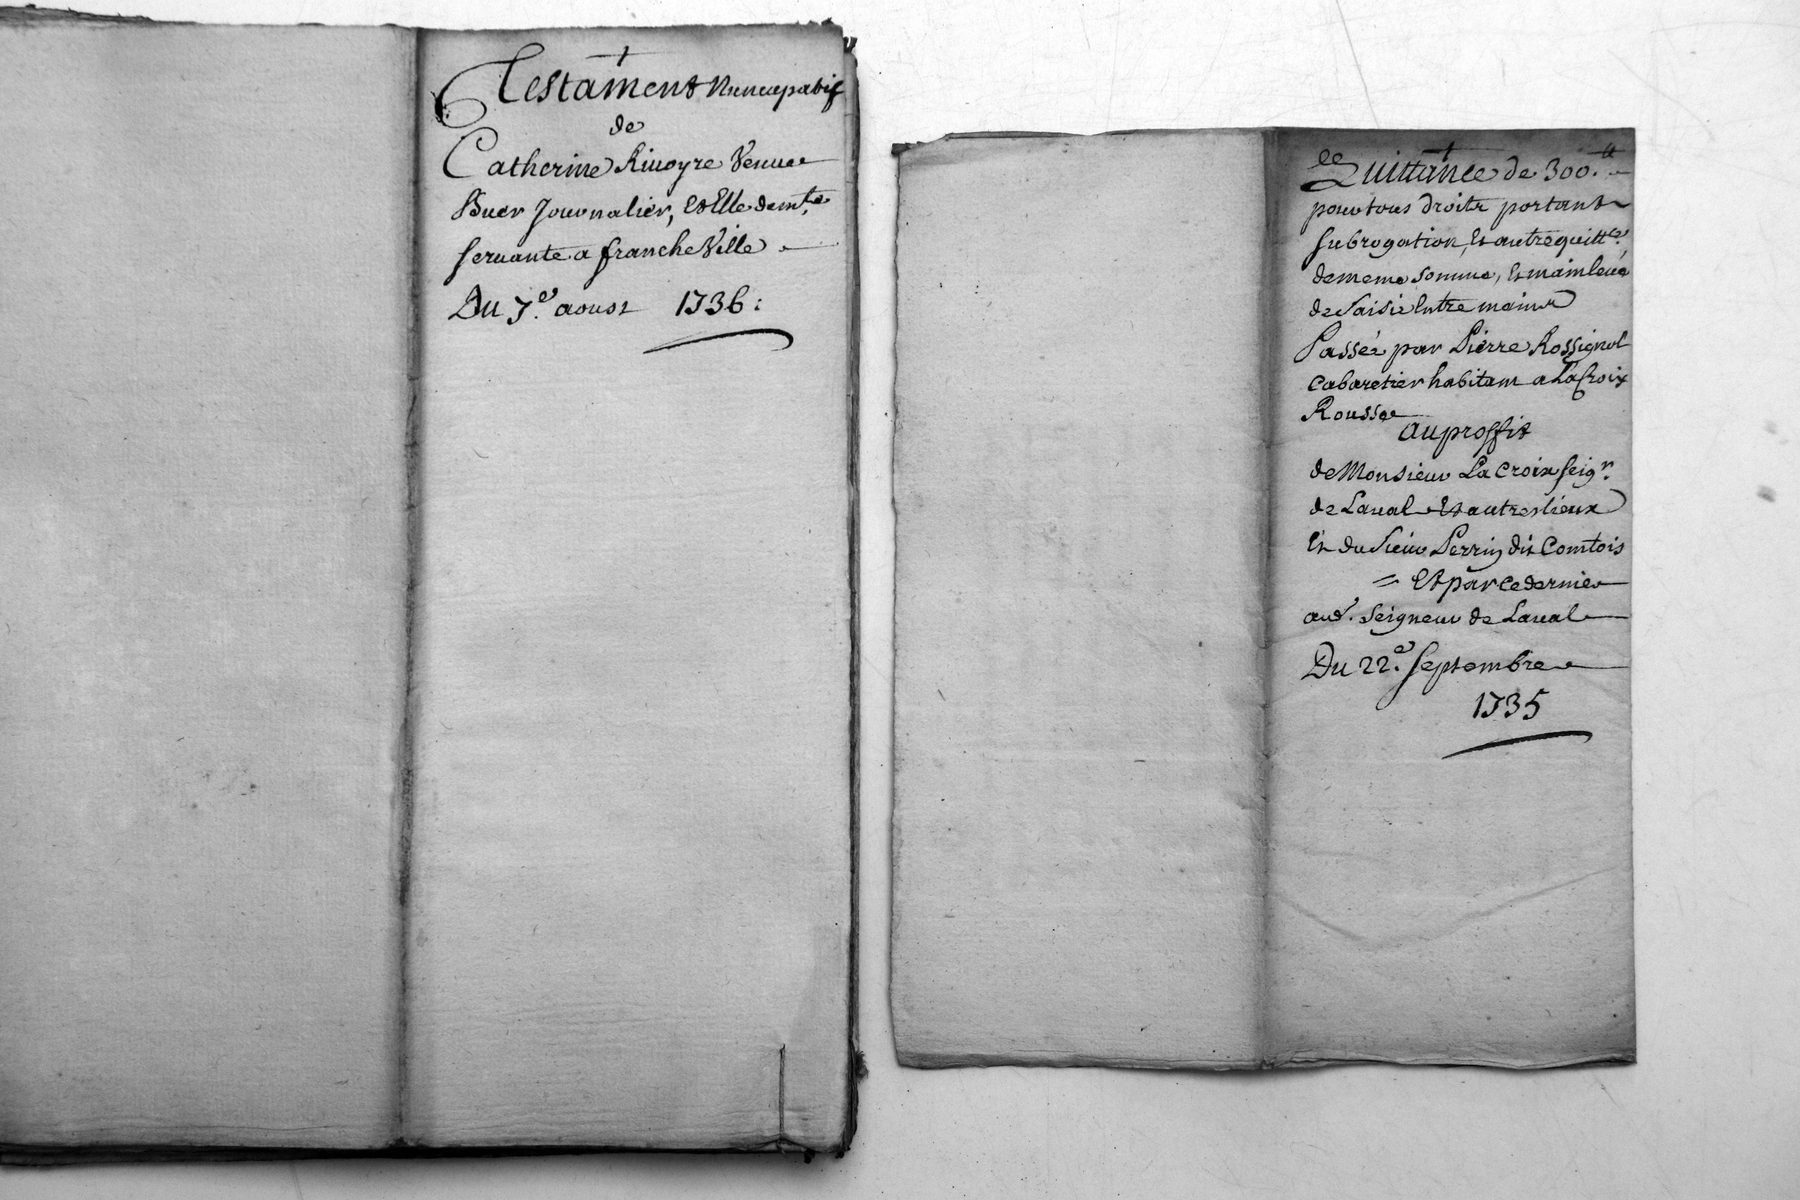 Testament Nuncupatif
de
Catherine Rivoyre Veuue
Buer Journalier, Et Elle demte.
servante a francheVille
Du 7e. aoust 1736:
Quittance de 300.tt
pour tous droits portant
subrogation, Et autre quittce.
de meme somme, Et mainleuée
de saisie Entre mains
Passée par Pierre Rossignol
Cabaretier habitant a La Croix
Rousse
au proffit
de Monsieur La Croix seigr.
de Laual Et autres lieux
Et du Sieur Perrin dit Comtois
= Et par ce dernier
aud. Seigneur de Laual
Du 22e. septembre
1735